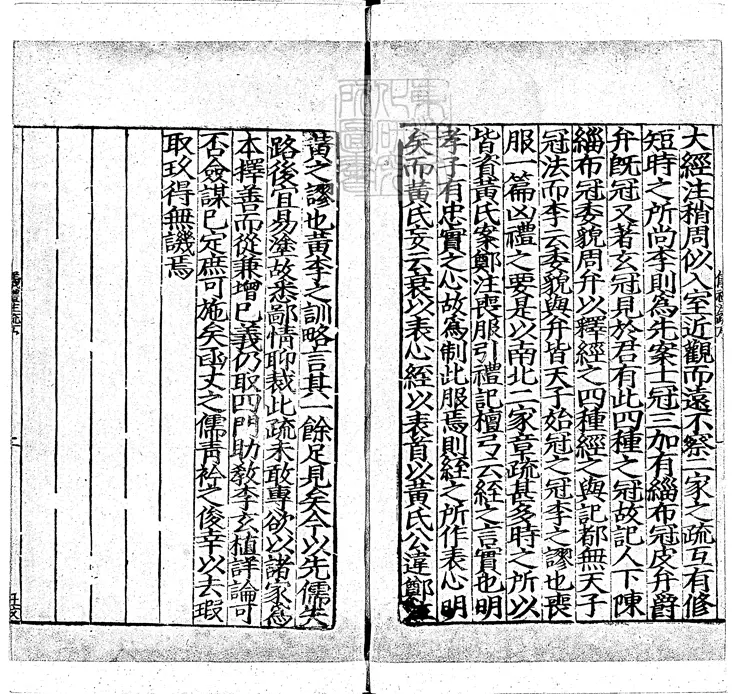 大經注稍周似入室近觀而遠不察二家之疏互有修
短時之所尚李則為先案士冠三加有緇布冠皮弁爵
弁既冠又著玄冠見於君有此四種之冠故記人下陳
緇布冠委貌周弁以釋經之四種經之與記都無天子
冠法而李云委貌與弁皆天子始冠之冠李之謬也喪
服一篇凶禮之要是以南北二家章疏甚多時之所以
皆資黃氏案鄭注喪服引禮記檀弓云絰之言實也明
孝子有忠實之心故為制此服焉則絰之所作表心明
矣而黃氏妄云衰以表心絰以表首以黃氏公違鄭注
黃之謬也黃李之訓略言其一餘足見矣今以先儒失
路後宜易塗故悉鄙情聊裁此疏未敢專欲以諸家為
本擇善而從兼增已義仍取四門助教李玄植詳論可
否僉謀已定庶可施矣函丈之儒青衿之俊幸以去瑕
取玖得無譏焉
二